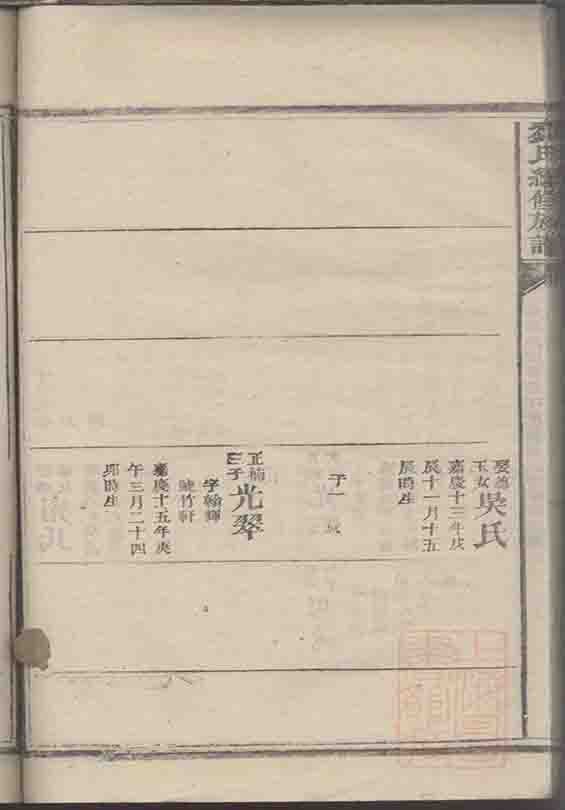 氏續修族譜
娶
玉女吳氏
嘉慶十三年戊
辰十一月十五
辰時生
子一
正楠
三子光翠
字翰輝
號竹軒
嘉慶十五年庚
午三月二十四
卯時生